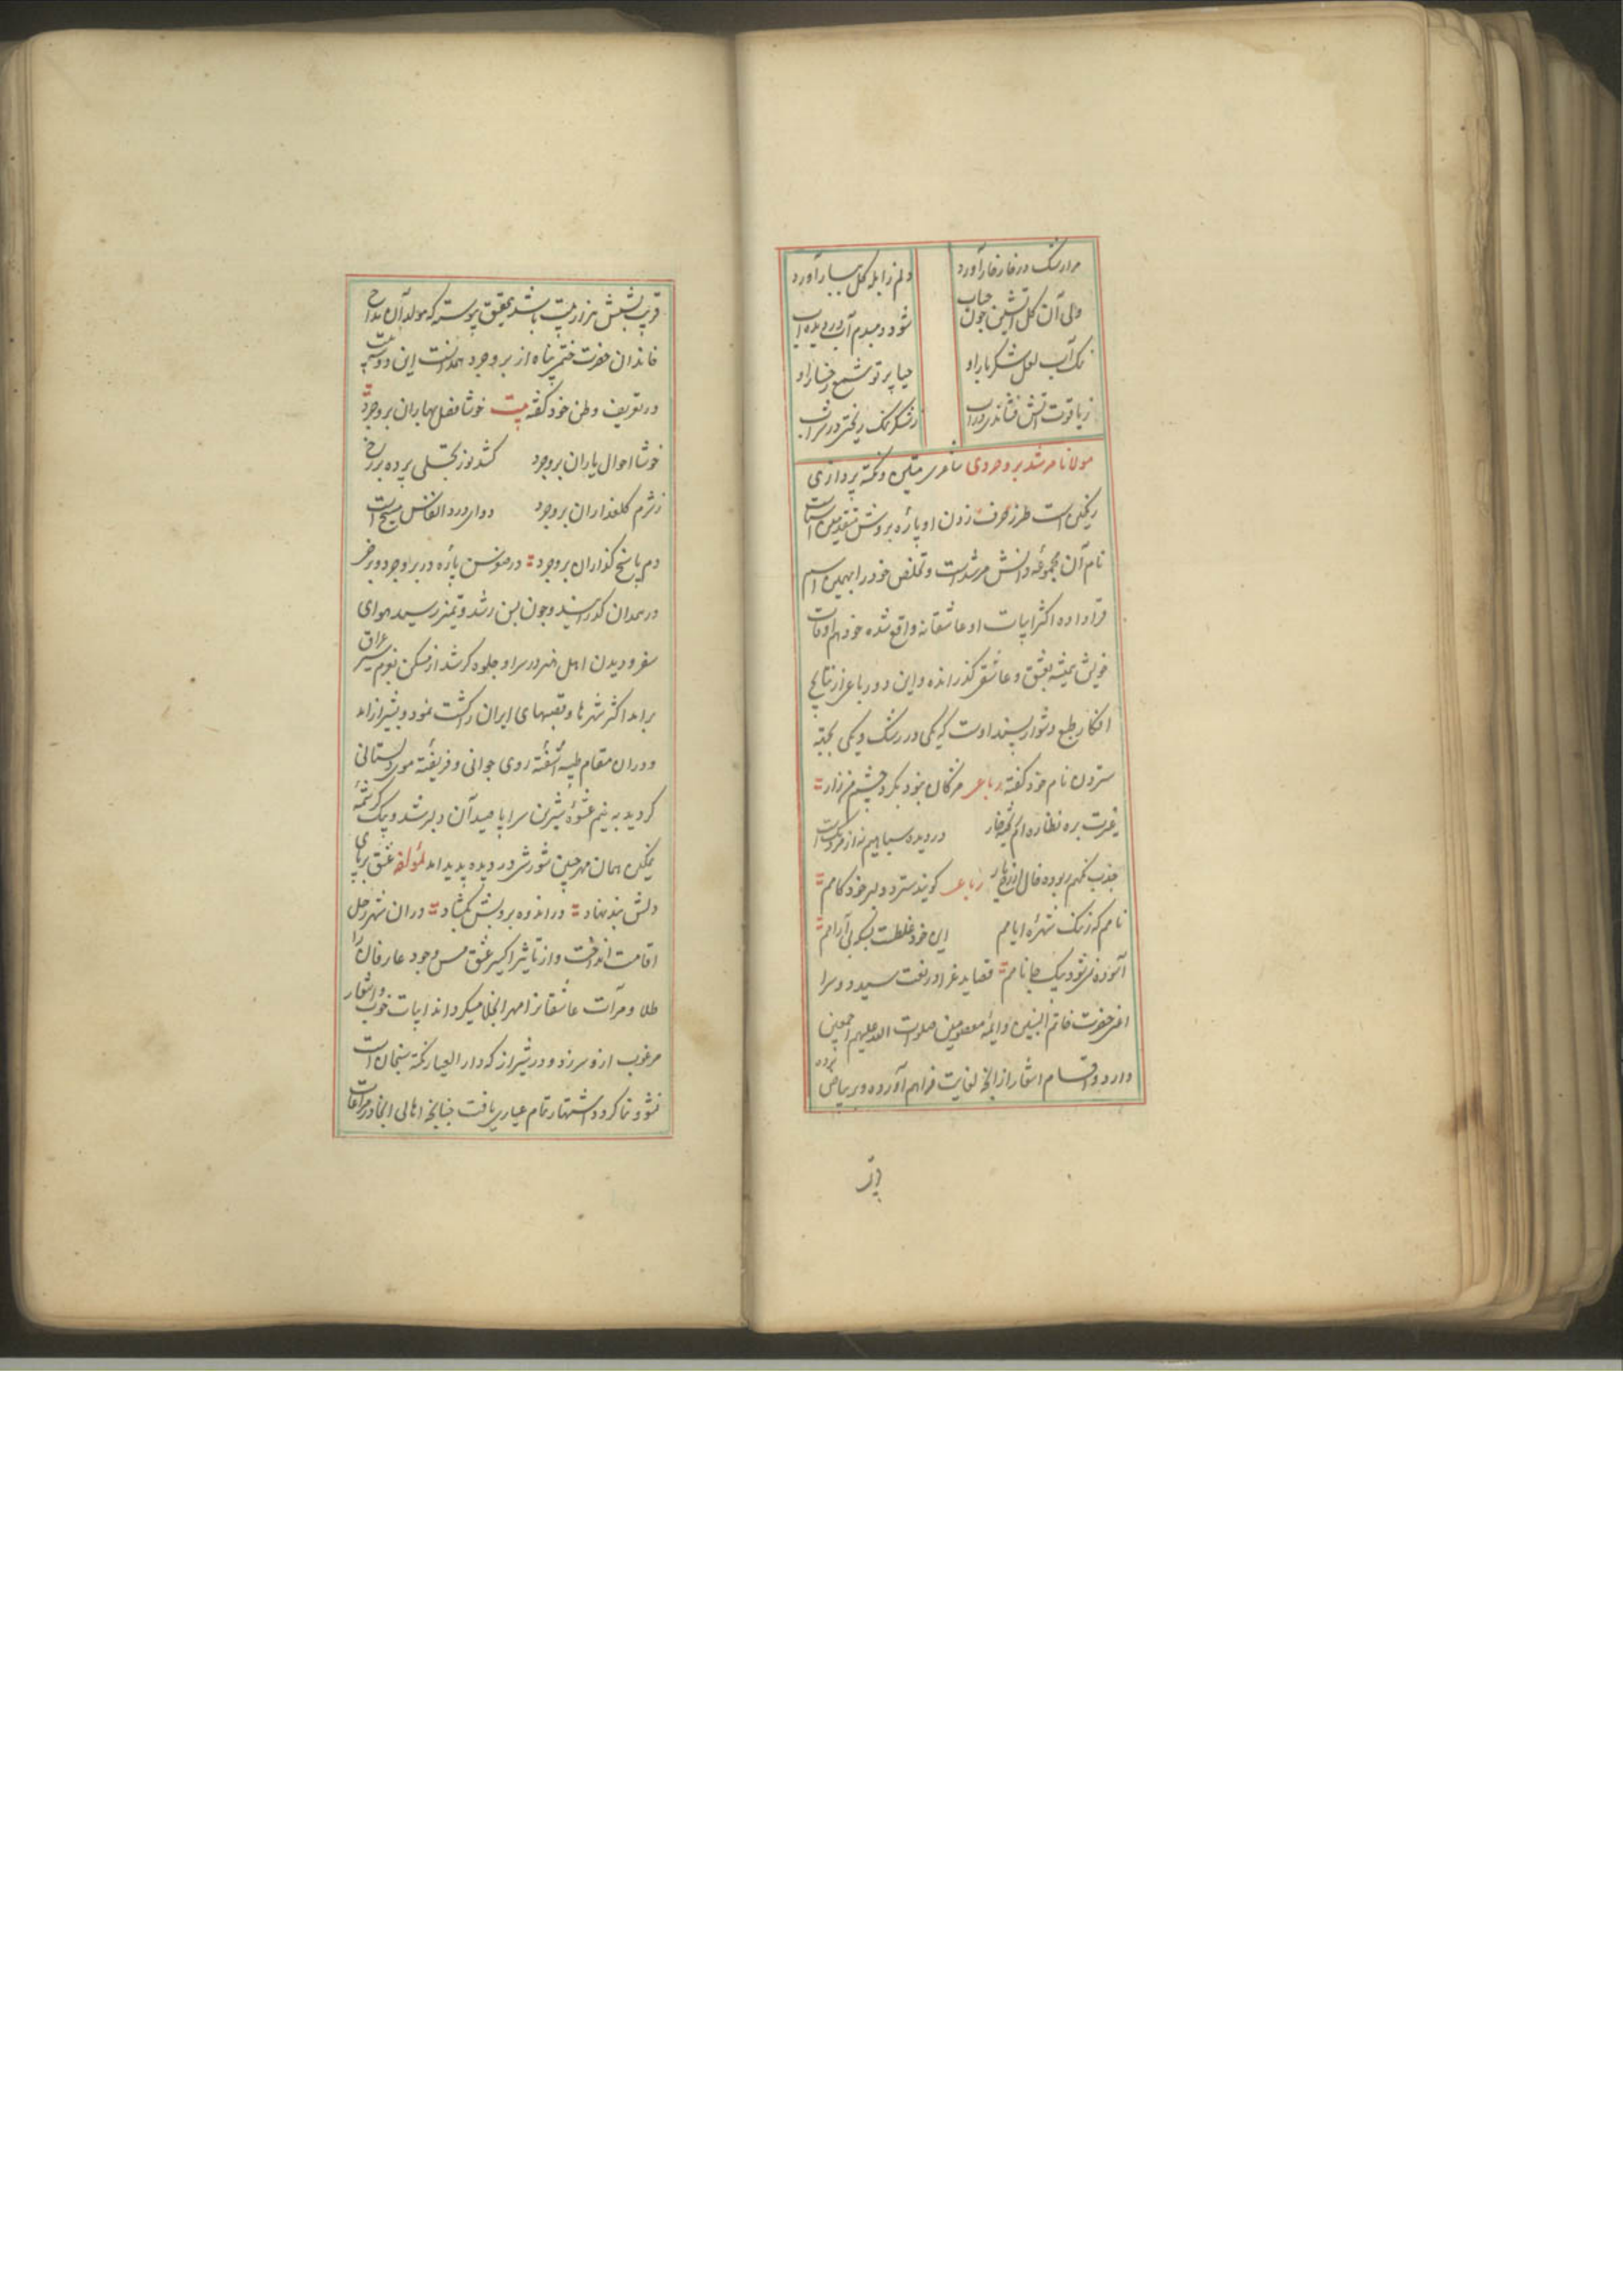 مرا رشک در خار خار آورد دلم ز ابله گل ببار آورد
ولی آن گل آتشین چون حباب شود دمبدم آب در دیده آب
نمک آب لعل شکربار او حیا پرتو شمع رخسار او
ز یاقوت آتش فشاندی در آب ز شکر نمک ریختی در شراب
مولانا مرشد بروجردی شاعری متین و نکته پردازی
رنگین است طرز حرف زدن او پاره بروش متقدمین است
نام آن مجموعه دانش مرشد است و تخلص خود را بهمین اسم
قرار داده اکثر ابیات او عاشقانه واقع شده خود هم اوقات
خویش همیشه بعشق و عاشقی گذرانده و این دو رباعی از نتایج
افکار طبع دشوار پسند اوست که یکی در رشک و یکی بجهة
ستردن نام خود گفته رباعی مژگان بنود بگرد چشم من زار
غیرت بره نظاره ام ریخته خار در دیده سیاهیم نه از مردمک است
جذب نگهم ربوده خال از رخ یار رباعی گویند سترد دلبر خودکامم
نامم که ز ننگ شهره ایامم این خود غلطست بسکه بی آرامم
آسوده نمی شود بیک جا نامم قصاید غرا در نعت سید دو سرا
اعنی حضرت خاتم النبیین و ایمه معصومین صلوات الله علیهم اجمعین
دارد و اقسام اشعار از آنجه لغایت فراهم آورده و بر بیاض برده
قریب بشش هزار بیت باشد بتحقیق پیوسته که مولد آن مداح
خاندان حضرت ختمی پناه از بروجرد همدانست این دو سه بیت
در تعریف وطن خود گفته بیت خوشا فصل بهاران بروجرد
خوشا احوال یاران بروجرد کشد نور تجلی پرده بر رخ
ز شرم گلعذاران بروجرد دوای درد انفاس مسیح است
دم پاسخ گذاران بروجرد در صغر سن پاره در بروجرد و برخی
در همدان گذرانید و چون بسن رشد و تمیز رسید هوای
سفر و دیدن اهل هنر در سر او جلوه گر شد از مسکن بعزم سیر عراق
برامد اکثر شهرها و قصبهای ایران را گشت نمود و بشیراز امد
و دران مقام طیبه آشفته روی جوانی و فریفته موی دلستانی
گردید به نیم عشوه شیرین سراپا صید آن دلبر شد و بیک کرشمه
نمکین همان مهر جبین شورشی در دیده پدید امد لمؤلفه عشق بر پای
دلش بند نهاد در اندوه برویش بگشاد دران شهر رحل
اقامت انداخت و از تاثیر اکسیر عشق مس وجود عارفان را
طلا و مرآت عاشقانرا مهر انجلا میگرداند ابیات خوب و اشعار
مرغوب ازو سر زد و در شیراز که دار العیار نکته سنجان است
نشو و نما کرد و اشتهار تمام عیاری یافت چنانچه اهالی انجا در مراعات